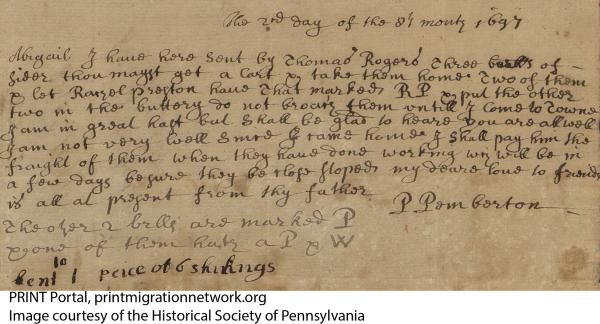 The 2nd day of the 8th month 1697
Abigail I have here sent by Thomas Rogers three brlls of
Sider thou mayst get a cart & take them home Two of them
& let Razzel preston have That marked RP & put the other
two in the buttery do not broach them untill I come to Towne
I am in great hast but shall be glad to heare you are all well
I am not very well Since I came home I shall pay him the
fraight of them when they have done working will be in
a few days besure they be close stoped my deare love to friends
is all at present from thy father
P Pemberton
The other 2 brlls are marked P
& one of them hath a P & W
sent 1 peice of 6 shillings
PRINT Portal, printmigrationnetwork.org
Image courtesy of the Historical Society of Pennsylvania